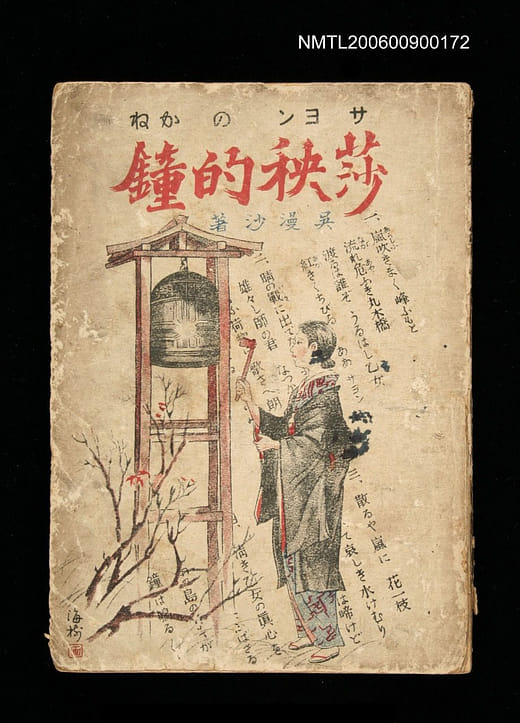 NMTL200600900172
サヨンのかね
莎秧的鐘
吳漫沙著
一、嵐吹きまく峰ふもと
流れ危ふき丸木橋
渡るは誰ぞ うるはし乙女
紅きくちびる あゝ サヨン
二、晴の戰に出で
雄々し師の君 なつ
荷 歌さへ朗
三、散るや嵐に 花一枝
て哀しき水けむり
は啼けど
清き乙女の眞心を
島の
鐘は鳴る
海樹